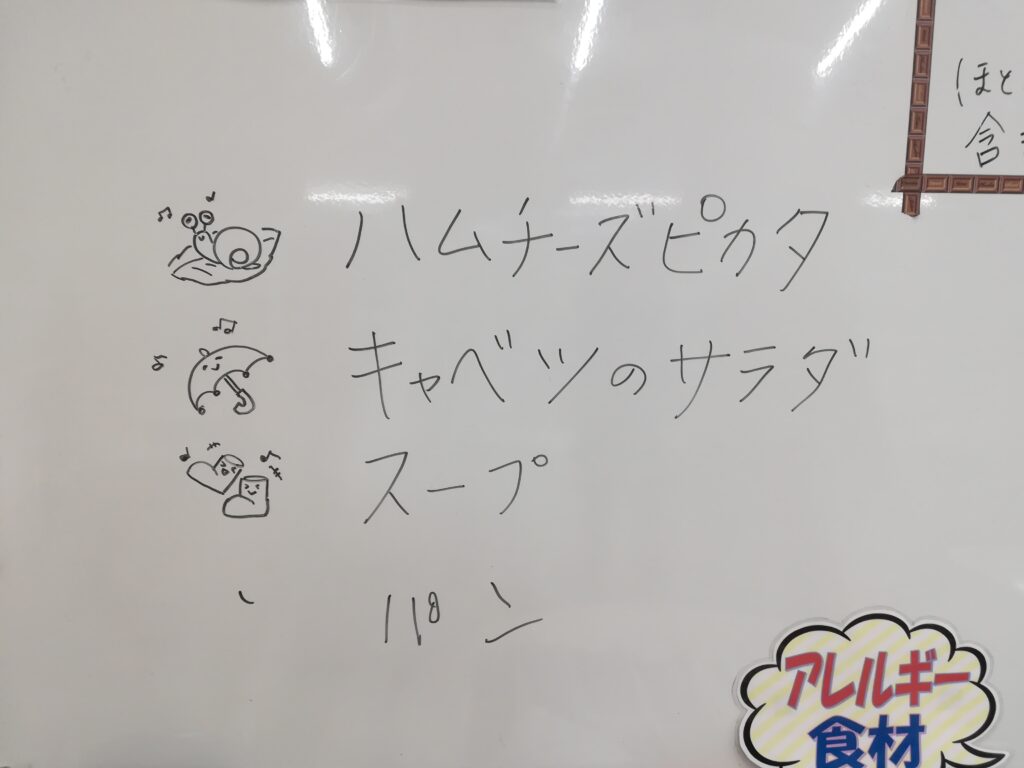 ほと
含
ハムチーズピカタ
キャベツのサラダ
スープ
パン
アレルギー
食材